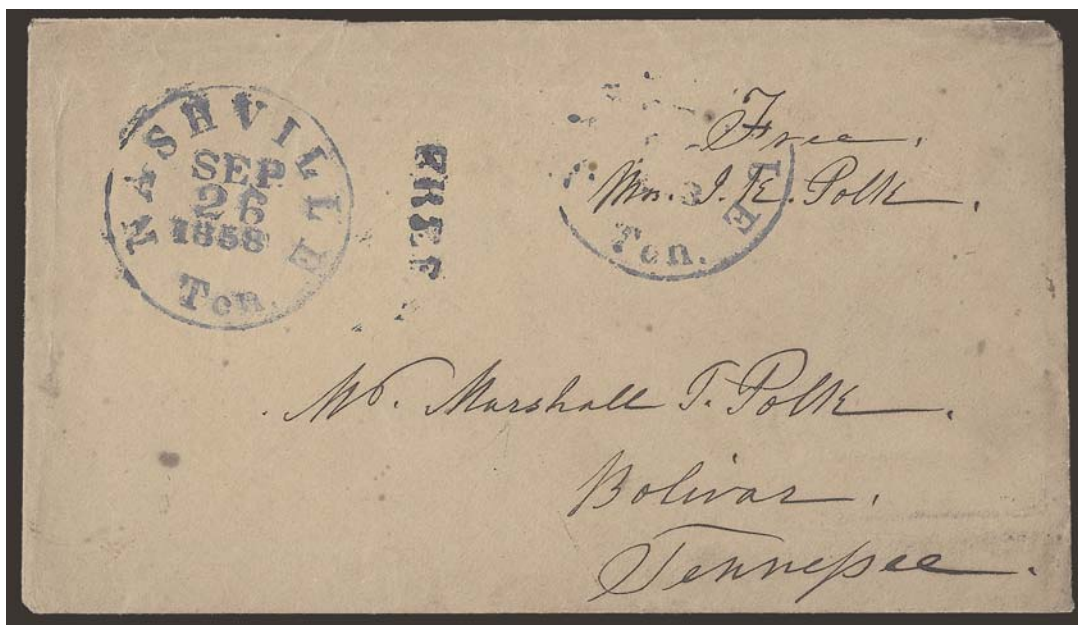 NASHVILLE
SEP
26
1858
Ten.
FREE
LE
Ten.
Free.
Mrs. J. K. Polk.
Mr. Marshall T. Polk.
Bolivar.
Tennessee.